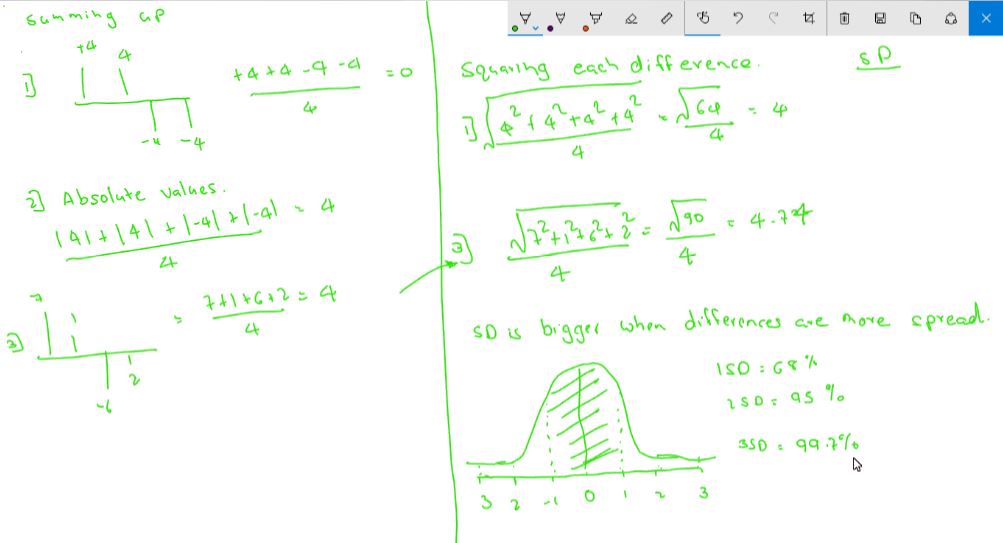 Summing up
1]
+4 4
-4 -4
+4+4-4-4 = 0
4
2] Absolute values.
|4|+|4|+|-4|+|-4| = 4
4
3]
7
1
1
-6
2
= 7+1+6+2 = 4
4
Squaring each difference. SD
1] √4²+4²+4²+4² = √64 = 4
4 4
3] √7²+1²+6²+2² = √90 = 4.74
4 4
SD is bigger when differences are more spread.
1SD = 68%
2SD = 95%
3SD = 99.7%
3 2 -1 0 1 2 3